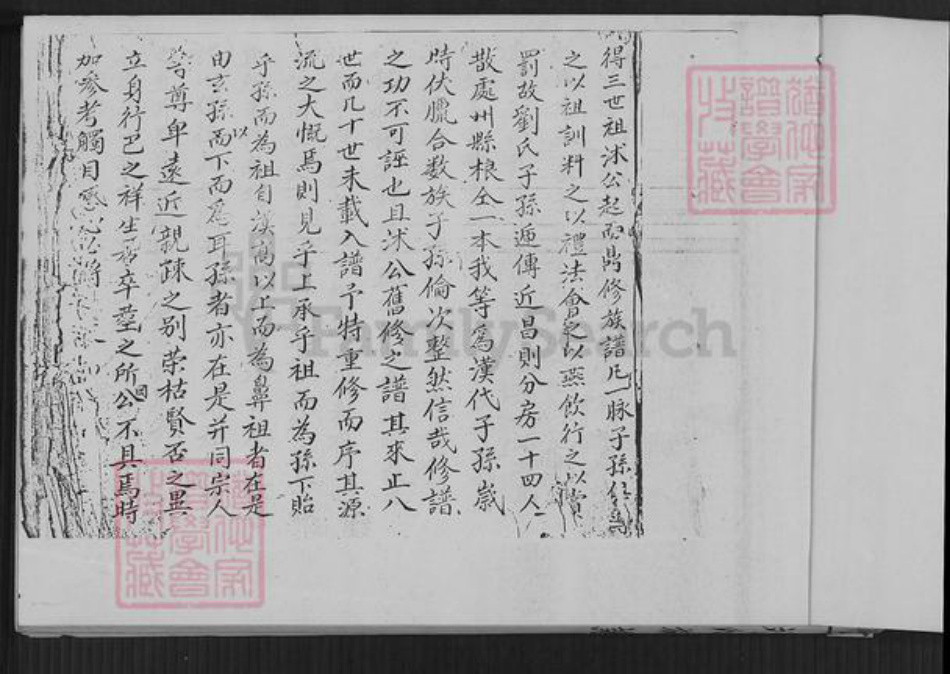 得三世祖沭公起而爲修族譜凡一脉子孫
之以祖訓料之以禮法會之以燕飲行之以賞
罰故劉氏子孫遞傳近昌則分房一十四人
散處州縣根仝一本我等爲漢代子孫歲
時伏臘合数族子孫倫次整然信哉修譜
之功不可誣也且沭公舊修之譜其來止八
世而几十世未載入譜予特重修而序其源
流之大慨焉則見乎上承乎祖而為孫下貽
乎孫而為祖自漢高以上而為鼻祖者在是
由玄孫以而下而為耳孫者亦在是并同宗人
等尊卑遠近親疎之别荣枯賢否之異
立身行己之祥生卒塟之所公不具焉時
加參考觸目
FamilySearch